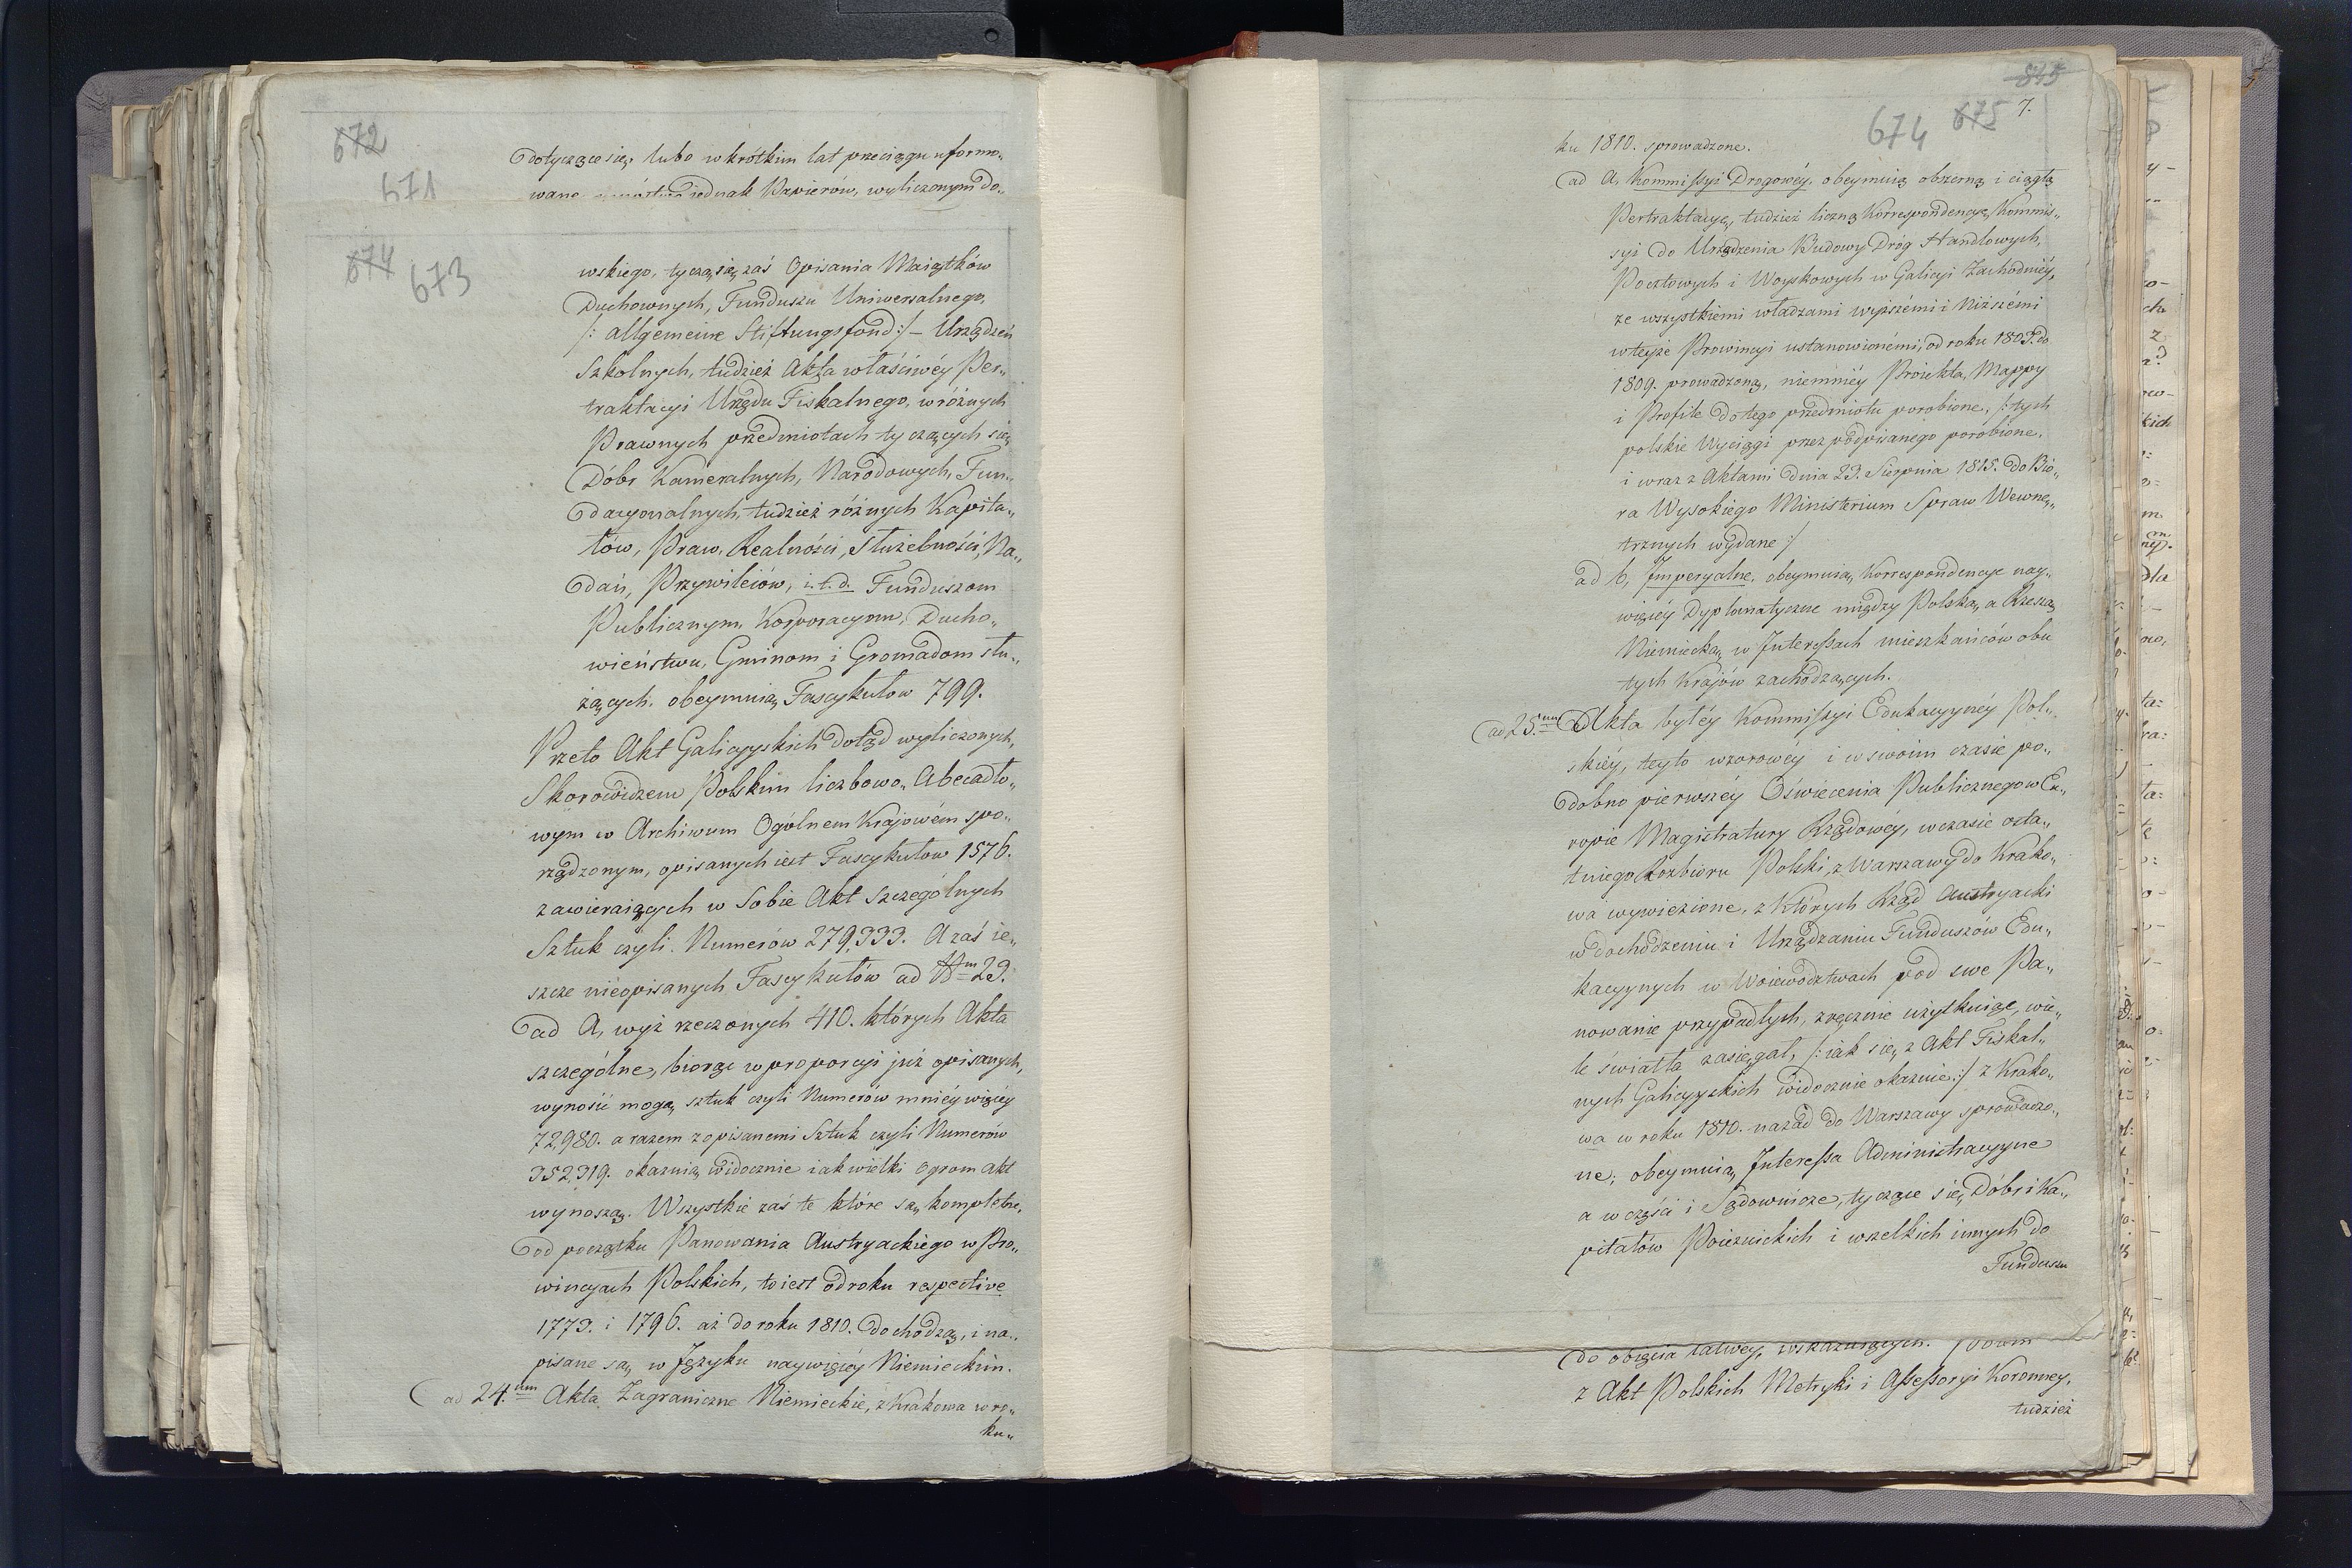 672
671
dotyczące się, lubo w krótkim lat przeciągu uformo„
wane jednak Papierów, wyliczonym do„
674
673
wskiego, tyczą się zaś Opisania Maiątków
Duchownych, Funduszu Uniwersalnego,
/: allgemeine Stiftungsfond :/ – Urządzeń
Szkolnych, tudzież Akta właściwéy Per„
traktacyi Urzędu Fiskalnego, w różnych
Prawnych przedmiotach tyczących się
Dóbr Kameralnych, Narodowych, Fun„
dacyonalnych, tudzież różnych Kapita„
łów, Praw, Realności, Służebności, Na„
dań, Przywileiów, i.t.d. Funduszom
Publicznym, Korporacyom, Ducho„
wieństwu, Gminom i Gromadom słu„
żących, obeymuią Fascykułow 799.
Przeto Akt Galicyyskich dotąd wyliczonych,
Skorowidzem Polskim liczbowo„Abecadło„
wym w Archiwum Ogólnem Krajowém spo„
rządzonym, opisanych iest Fascykułow 1576.
zawieraiących w Sobie Akt szczególnych
Sztuk czyli Numerów 279,333. A zaś ie„
szcze nieopisanych Fascykułów ad 23.
ad A, wyż rzeczonych 410. których Akta
szczególne, biorąc w proporcyi już opisanych,
wynosić mogą sztuk czyli Numerów mniéy więcéy
72,980. a razem z opisanemi Sztuk czyli Numerów
352,319. okazuią widocznie iak wielki ogrom Akt
wynoszą. Wszystkie zaś te które są kompletne,
od początku Panowania Austryackiego w Pro„
wincyach Polskich, to iest od roku respective
1773. i 1796. aż do roku 1810. dochodzą, i na„
pisane są w Języku naywięcéy Niemieckim.
ad 24.um Akta Zagraniczne Niemieckie, z Krakowa w ro„
ku„
845
7.
674 675
ku 1810. sprowadzone.
ad A, Kommissyi Drogowéy, obeymuią obszerną i ciągłą
Pertraktacyę, tudzież liczną Korrespondencyę Kommis„
syi do Urządzenia Budowy Dróg Handlowych,
Pocztowych i Woyskowych w Galicyi Zachodniéy,
ze wszystkiemi władzami wyższémi i niższémi
w teyże Prowincyi ustanowionémi, od roku 1803. do
1809. prowadzoną, niemniéy Proiekta, Mappy
i Profile do tego przedmiotu porobione, /: tych
polskie Wyciągi przez podpisanego porobione,
i wraz z Aktami dnia 23. Sierpnia 1815. do Bió„
ra Wysokiego Ministerium Spraw Wewnę„
trznych wydane :/
ad b, Imperyalne, obeymuią Korrespondencye nay„
więcéy Dyplomatyczne między Polską a Rzeszą
Niemiecką w Interessach mieszkańców obu
tych Krajów zachodzących.
ad 25.um Akta byłéy Kommissyi Edukacyynéy Pol„
skiéy, teyto wzorowéy i w swoim czasie po„
dobno pierwszéy Oświecenia Publicznego w Eu„
ropie Magistratury Rządowéy, w czasie osta„
tniego Rozbioru Polski, z Warszawy do Krako„
wa wywiezione, z których Rząd Austryacki
w dochodzeniu i Urządzaniu Funduszów Edu„
kacyynych w Woiewództwach pod swe Pa„
nowanie przypadłych, zręcznie użytkuiąc, wie„
le światła zasięgał, /: iak się z Akt Fiskal„
nych Galicyyskich widocznie okazuie :/ z Krako„
wa w roku 1810. nazad do Warszawy sprowadzo„
ne; obeymuią Interessa Administracyyne
a w części i Sądownicze, tyczące się Dóbr i Ka„
pitałów Poiezuickich i wszelkich innych do
Funduszu
do obięcia łatwey, wskazuiących.
z Akt Polskich Metryki i Assessoryi Koronney,
tudzież